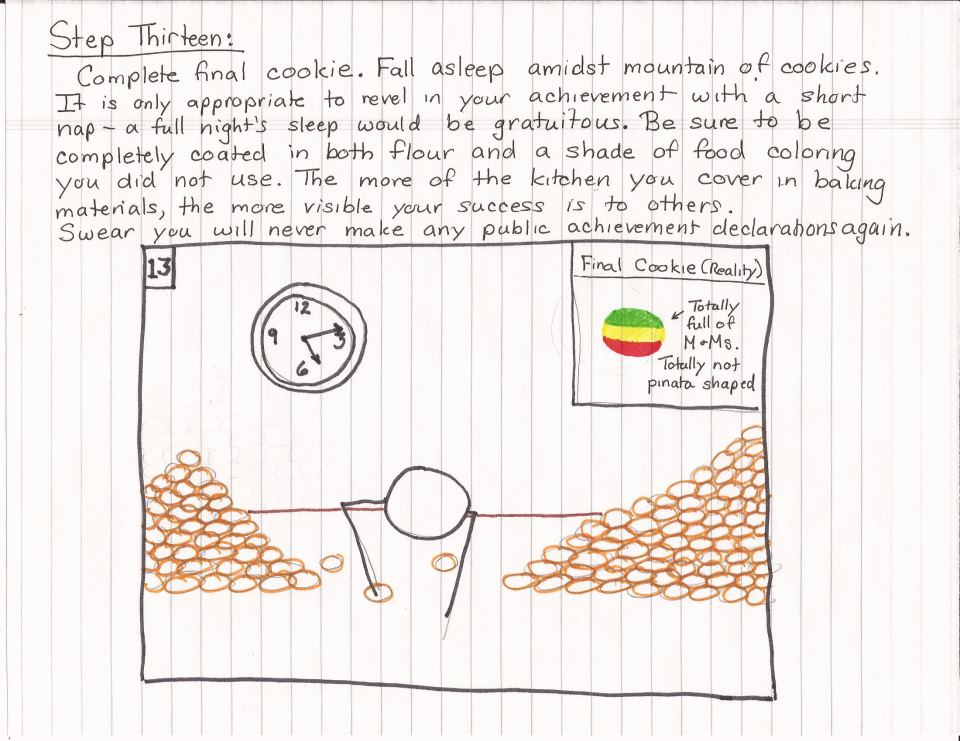 Step Thirteen:
Complete final cookie. Fall asleep amidst mountain of cookies.
It is only appropriate to revel in your achievement with a short
nap - a full night's sleep would be gratuitous. Be sure to be
completely coated in both flour and a shade of food coloring
you did not use. The more of the kitchen you cover in baking
materials, the more visible your success is to others.
Swear you will never make any public achievement declarations again.
13
Final Cookie (Reality)
12
9
3
6
Totally
full of
M+Ms.
Totally not
pinata shaped